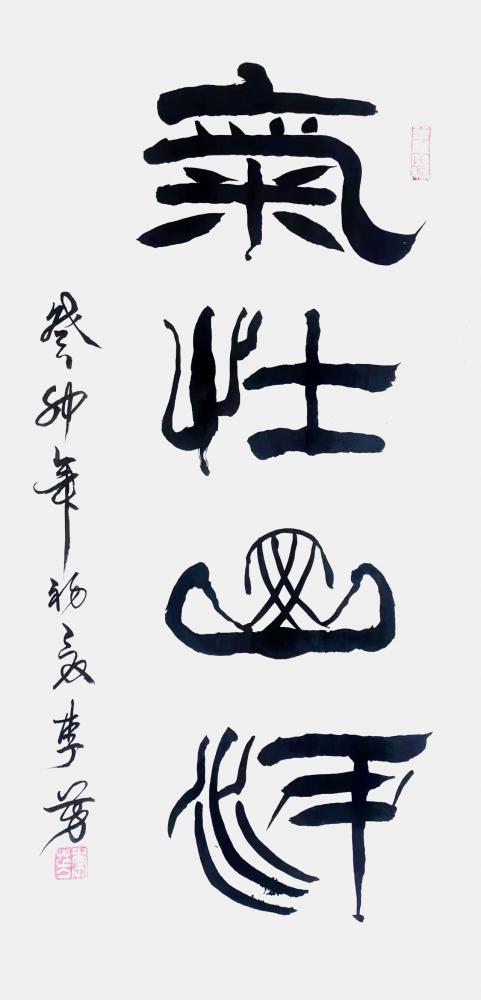 氣壯山河
癸卯年初夏李芳